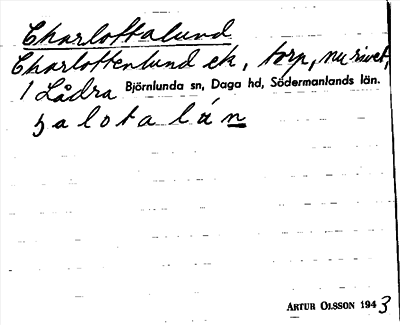 Charlottalund
Charlottenlund ek, torp, nu rivet,
1 Lådra Björnlunda sn, Daga hd, Södermanlands län.
ARTUR OLSSON 1943